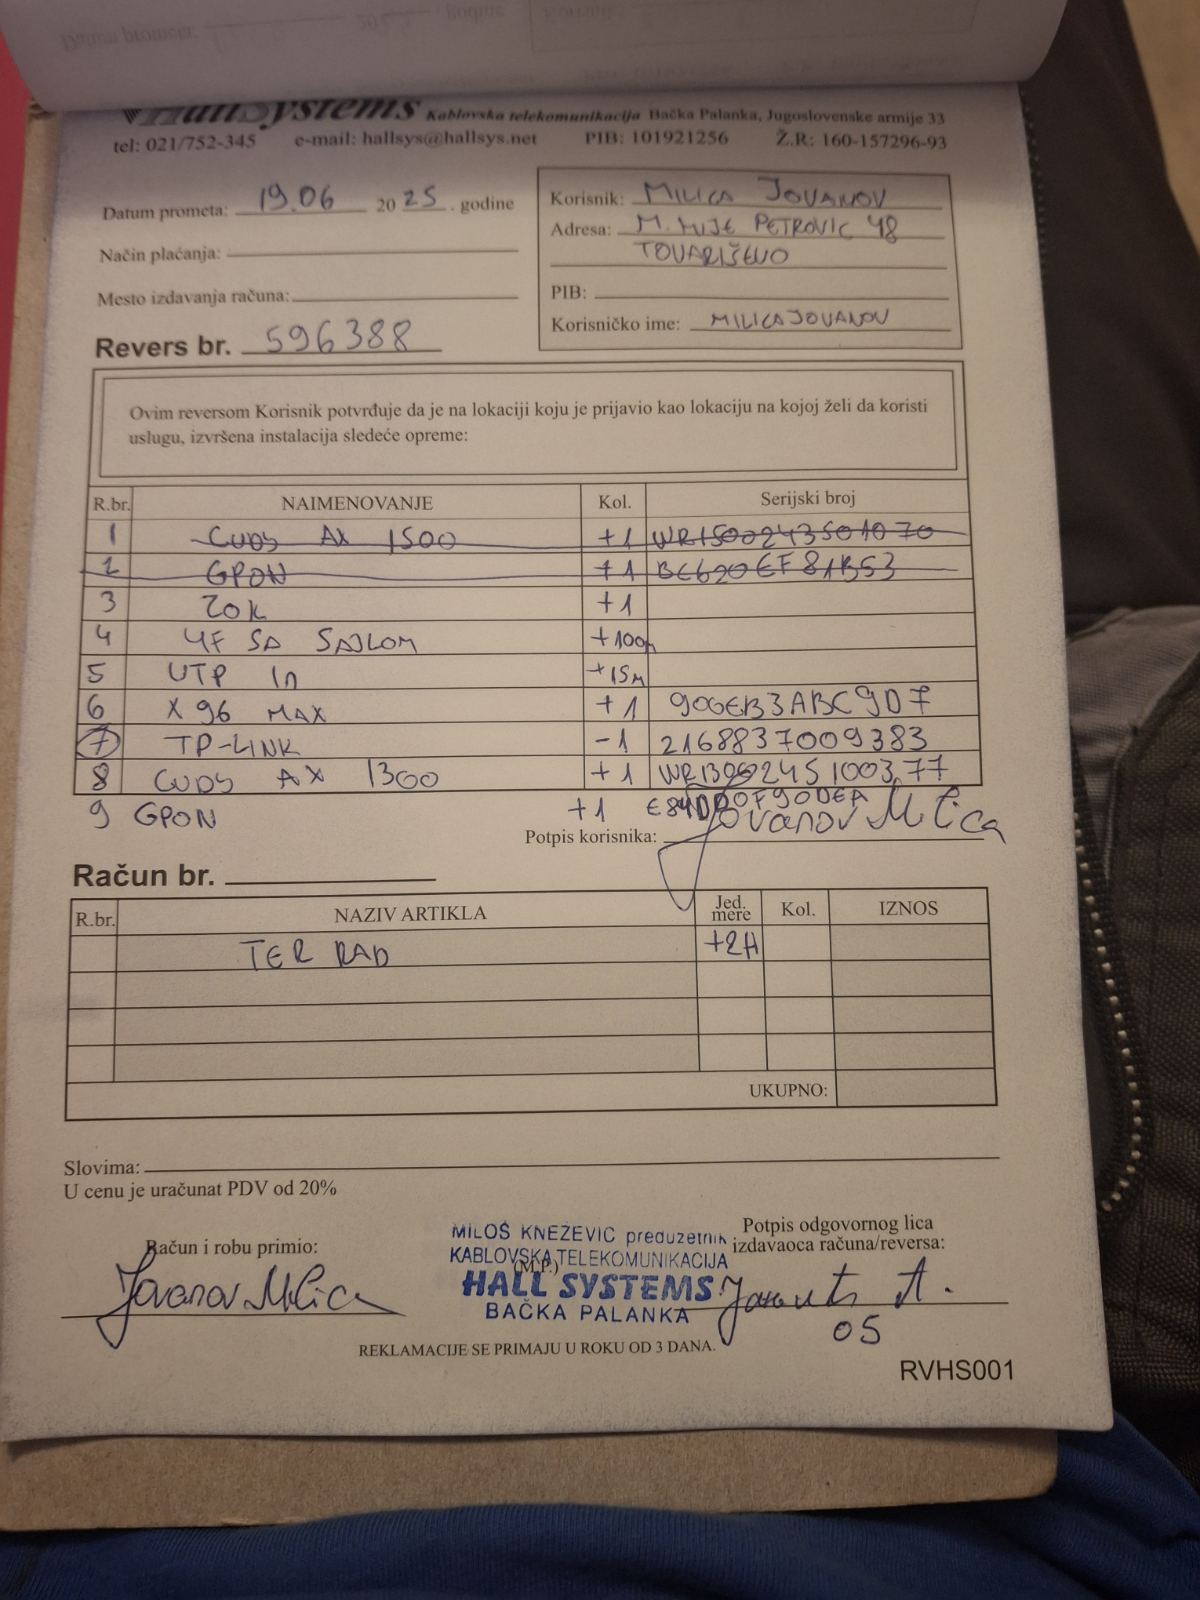 HallSystems Kablovska telekomunikacija Bačka Palanka, Jugoslovenske armije 33
tel: 021/752-345 e-mail: hallsys@hallsys.net PIB: 101921256 Ž.R: 160-157296-93
Datum prometa: 19.06 2025. godine
Način plaćanja:
Mesto izdavanja računa:
Revers br. 596388
Korisnik: MILICA JOVANOV
Adresa: M. MIJE PETROVIC 48
TOVARIŠEVO
PIB:
Korisničko ime: MILICAJOVANOV
Ovim reversom Korisnik potvrđuje da je na lokaciji koju je prijavio kao lokaciju na kojoj želi da koristi
uslugu, izvršena instalacija sledeće opreme:
R.br. NAIMENOVANJE Kol. Serijski broj
1 CUDY AX 1500 +1 WR1500243501070
2 GPON +1 BC620EF81B53
3 ZOK +1
4 4F SA SAJLOM +100m
5 UTP IN +15M
6 X 96 MAX +1 90GEB3ABC9D7
7 TP-LINK -1 2168837009383
8 CUDY AX 1300 +1 WR1300245100377
9 GPON +1 E84DD0F90DEA
Potpis korisnika: Jovanov Milica
Račun br.
R.br. NAZIV ARTIKLA Jed. mere Kol. IZNOS
TER RAD +2H
UKUPNO:
Slovima:
U cenu je uračunat PDV od 20%
Račun i robu primio:
Jovanov Milica
MILOŠ KNEŽEVIĆ preduzetnik
KABLOVSKA TELEKOMUNIKACIJA
(M.P.)
HALL SYSTEMS
BAČKA PALANKA
Potpis odgovornog lica
izdavaoca računa/reversa:
05
REKLAMACIJE SE PRIMAJU U ROKU OD 3 DANA.
RVHS001